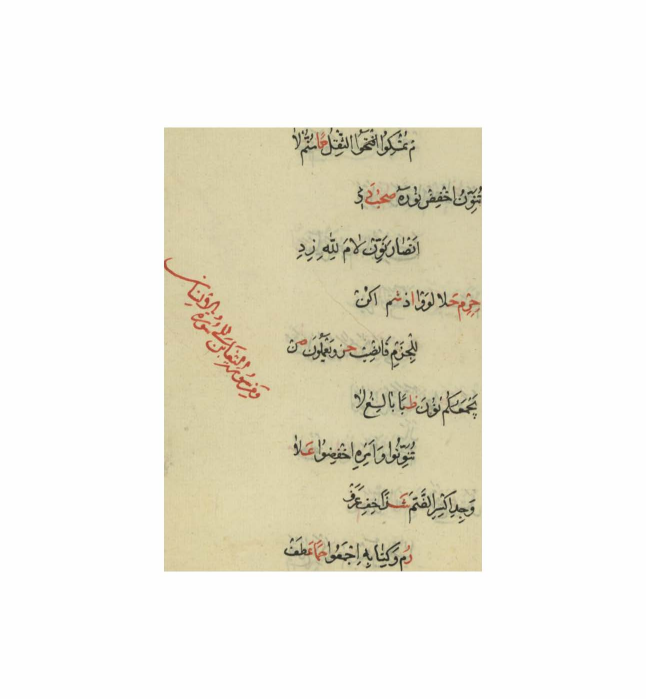 م تمسكوا الثقل حما متم لا
تنون اخفض نوره صحب دري
انصار نون لام لله زد
حرم حلا لووا اذ شم اكن
للجزم فانصب حز ويعملون صن
يجمعكم نون ظبا بالغ لا
تنونوا وامره اخفضوا علا
وجد اكسر الضم شذا خف عرف
رم وكتابه اجمعوا حما عطف
ومن سورة التغابن الى سورة الانسان